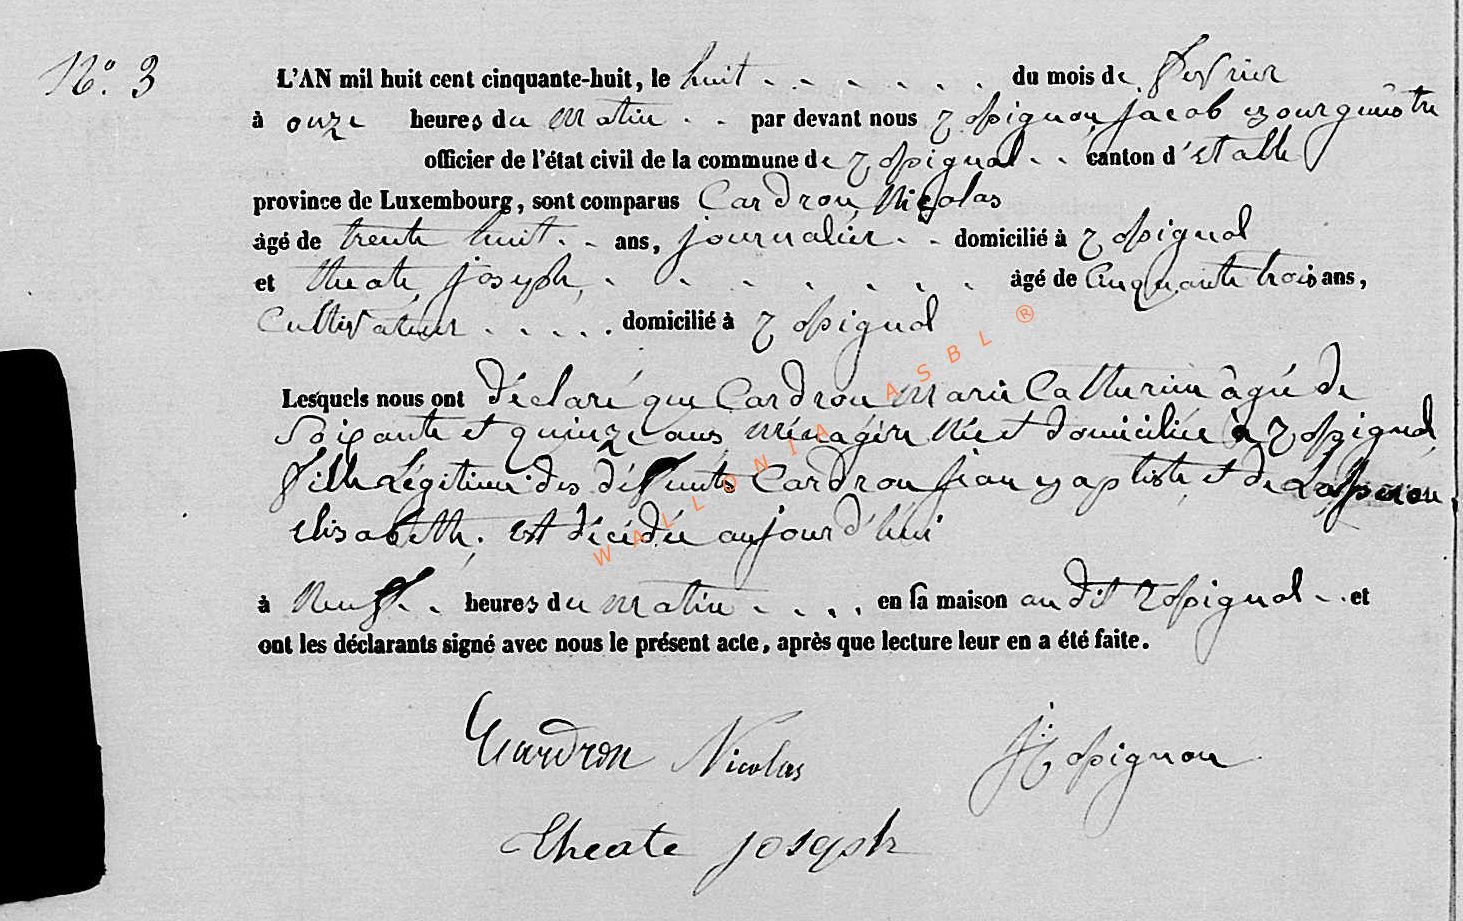 N.º 3
L'AN mil huit cent cinquante-huit, le huit . . . . . . du mois de fevrier
à onze heures du matin . . par devant nous Rossignon Jacob Bourgumestre
officier de l'état civil de la commune de Rossignol . . canton d'Etalle
province de Luxembourg, sont comparus Cardron Nicolas
âgé de trente huit . . ans, journalier . . domicilié à Rossignol
et theate joseph, . . . . . . . âgé de Cinquante trois ans,
Cultivateur . . . . . domicilié à Rossignol
Lesquels nous ont déclaré que Cardron Marie Catherine âgée de
Soixante et quinze ans, ménagère née et domiciliée à Rossignol,
fille Légitime des défunts Cardron jean Baptiste et de
elisabeth, est décédée aujourd'hui
à neuf . . heures du matin . . . . en sa maison au dit Rossignol . . et
ont les déclarants signé avec nous le présent acte, après que lecture leur en a été faite.
Cardron Nicolas J: Rossignon
theate joseph
WALLONIA ASBL ®